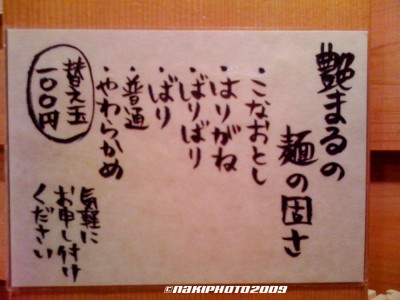 艶まるの
麺の固さ
・こなおとし
・はりがね
・ばりばり
・ばり
・普通
・やわらかめ
替え玉
一〇〇円
気軽に
お申し付け
ください
©NAKIPHOTO2009